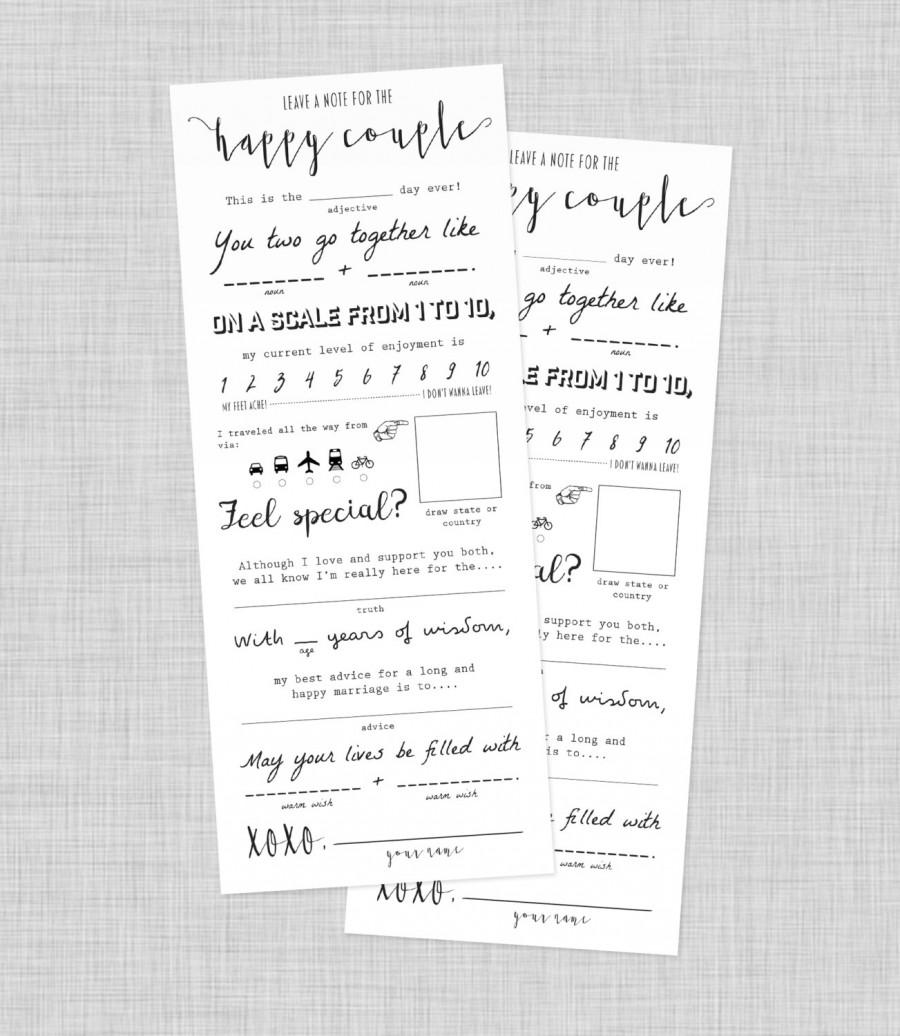 LEAVE A NOTE FOR THE
happy couple
This is the ____________ day ever!
adjective
You two go together like
________ + ________.
noun noun
ON A SCALE FROM 1 TO 10,
my current level of enjoyment is
1 2 3 4 5 6 7 8 9 10
MY FEET ACHE! I DON'T WANNA LEAVE!
I traveled all the way from
via:
draw state or
country
Feel special?
Although I love and support you both,
we all know I'm really here for the....
truth
With __ years of wisdom,
age
my best advice for a long and
happy marriage is to....
advice
May your lives be filled with
___________ + ___________.
warm wish warm wish
XOXO,
your name
LEAVE A NOTE FOR THE
py couple
day ever!
adjective
go together like
+ ________.
noun
E FROM 1 TO 10,
vel of enjoyment is
5 6 7 8 9 10
I DON'T WANNA LEAVE!
from
draw state or
country
al?
support you both,
y here for the....
of wisdom,
r a long and
is to....
e filled with
warm wish
XOXO,
your name